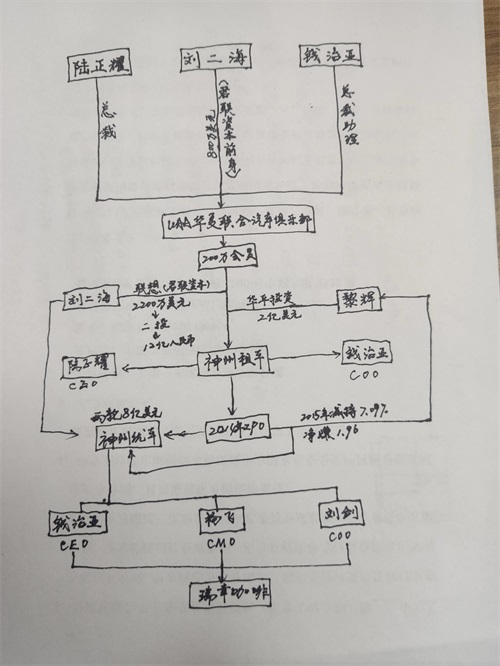 陆正耀
刘二海
钱治亚
总裁
(君联资本前身)
800万美元
总裁助理
UAA华夏联合汽车俱乐部
200万会员
刘二海
联想(君联资本)
2200万美元
二投
12亿人民币
华平投资
2亿美元
黎辉
陆正耀
CEO
神州租车
钱治亚
COO
两轮8亿美元
神州统车
2014年IPO
2015年减持7.09%
净赚1.96
钱治亚
CEO
杨飞
CMO
刘剑
COO
瑞幸咖啡